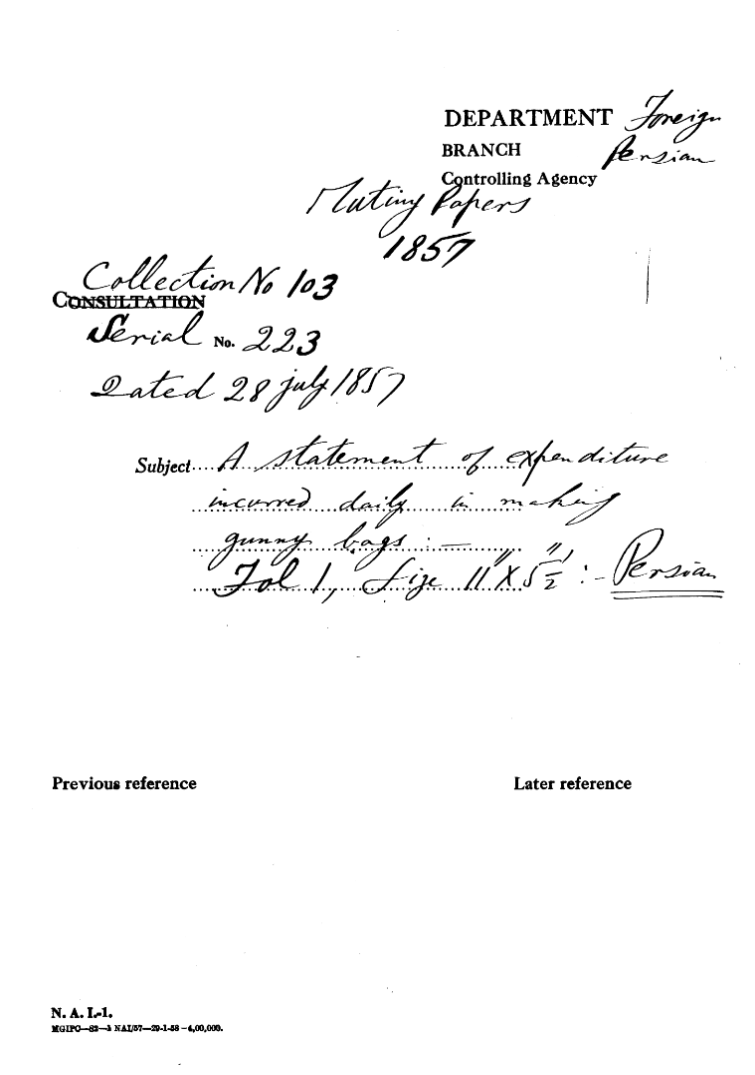 DEPARTMENT Foreign
BRANCH Persian
Controlling Agency
Mutiny Papers
1857
Collection No 103
CONSULTATION
Serial No. 223
Dated 28 july 1857
Subject.... A statement of expenditure
incurred daily in making
gunny bags : —
Fol 1, Size 11" X 5½" :- Persian
Previous reference Later reference
N. A. I.-1.
MGIPC—82—3 NAI/57—29-1-58—4,00,000.